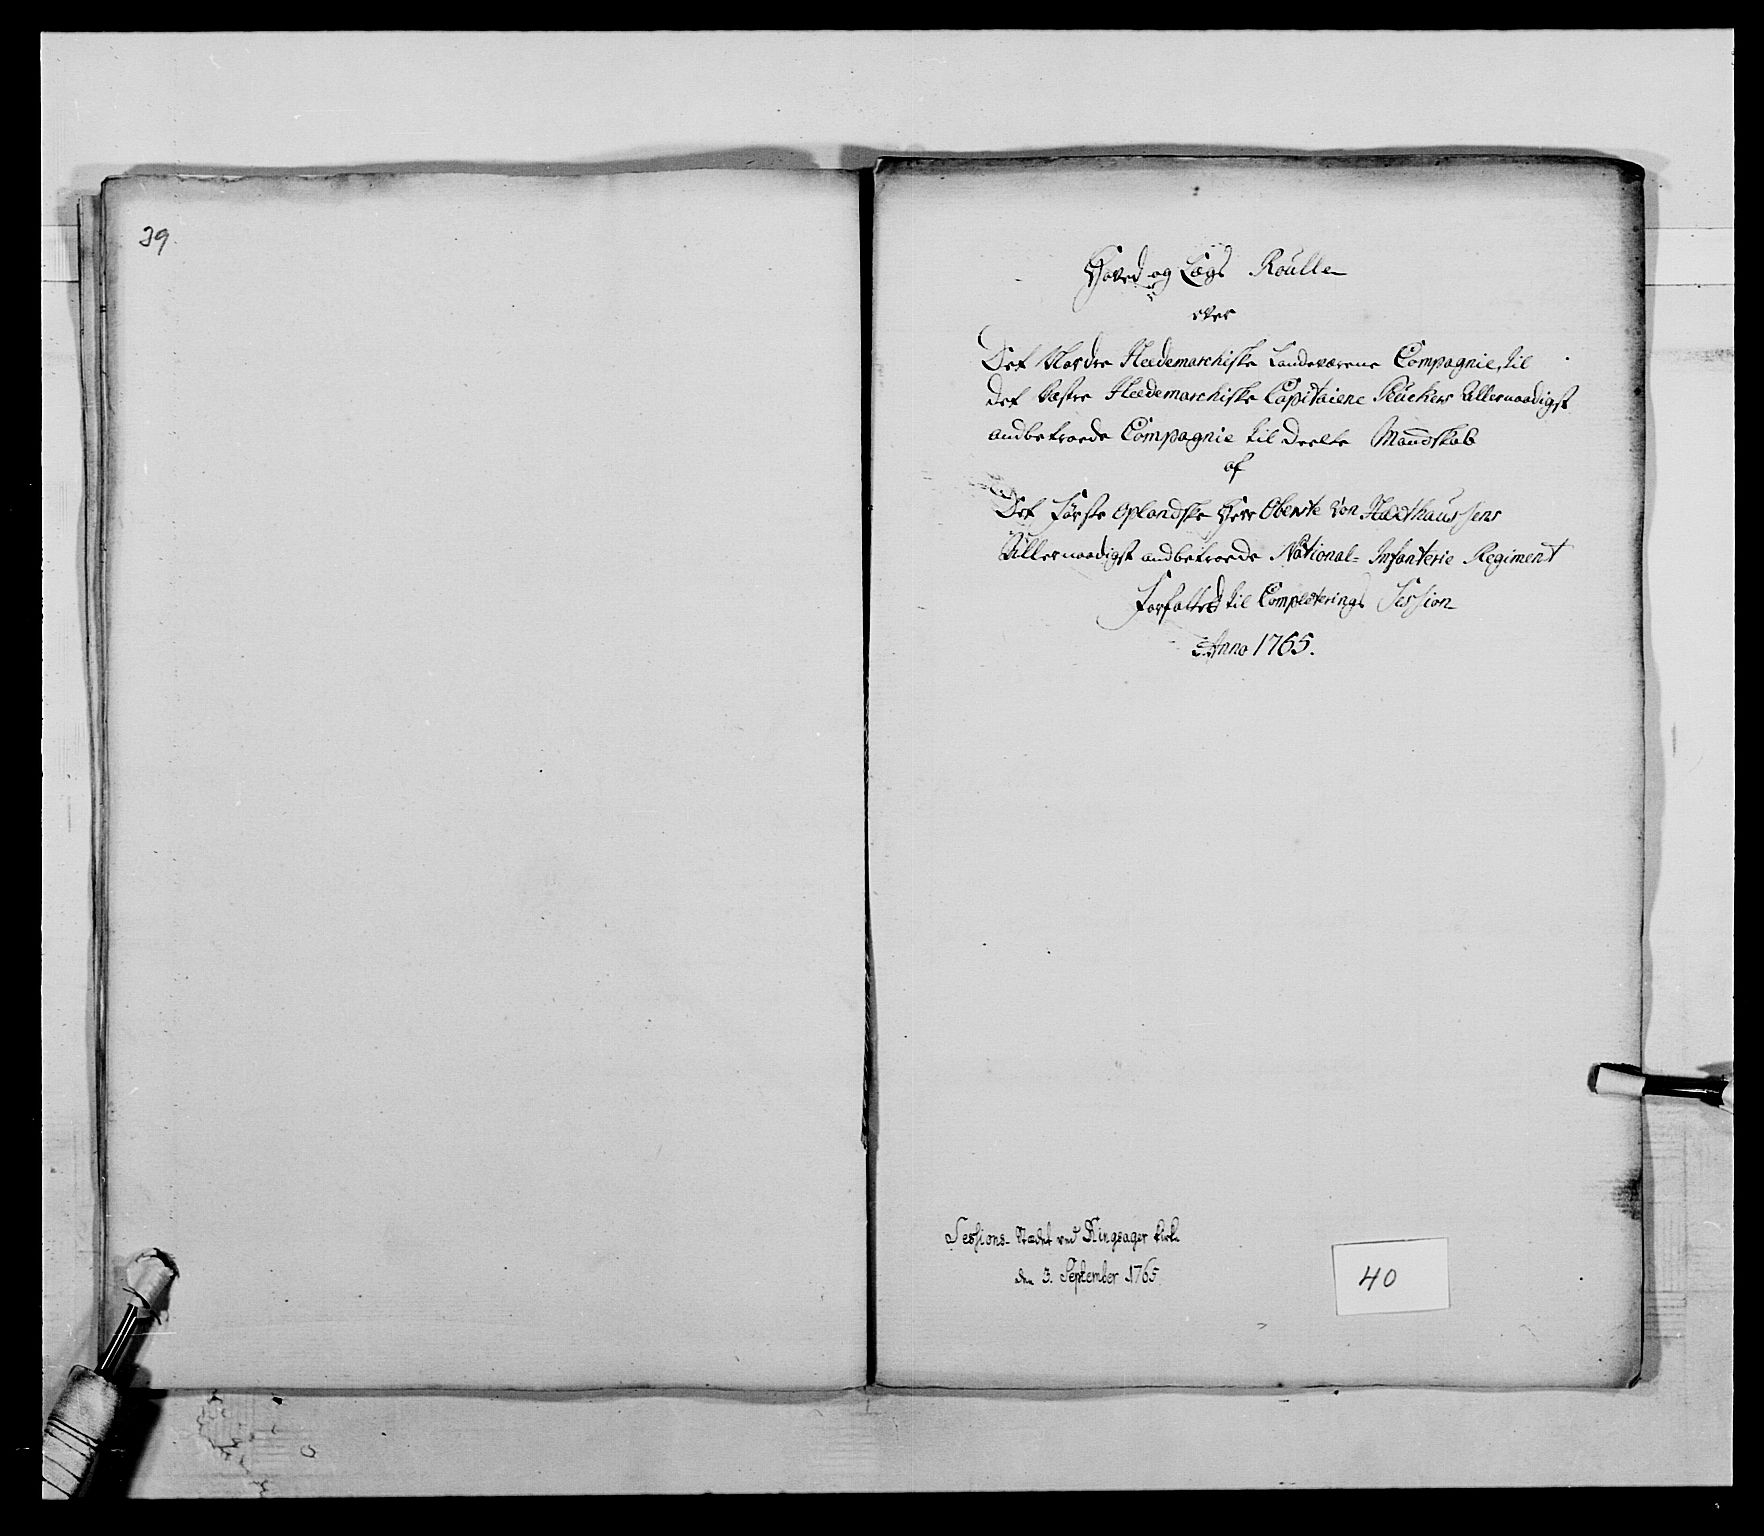 39
Hoved og Lægs Roulle
over
Det Nordre Hedemarchiske Landeværens Compagnie, til
det Væstre Hedemarchiske Capitaiene Rückers Allernaadigst
andbetroede Compagnie til deelte Mandskab
af
Det Første Oplandske Herr Oberste von Haxthaussens
Allernaadigst andbetroede National- Infanterie Regiment
Forfattet til Completerings Session
Anno 1765.
Sessions- Stædet ved Ringsager Kirke
den 3. September 1765.
40